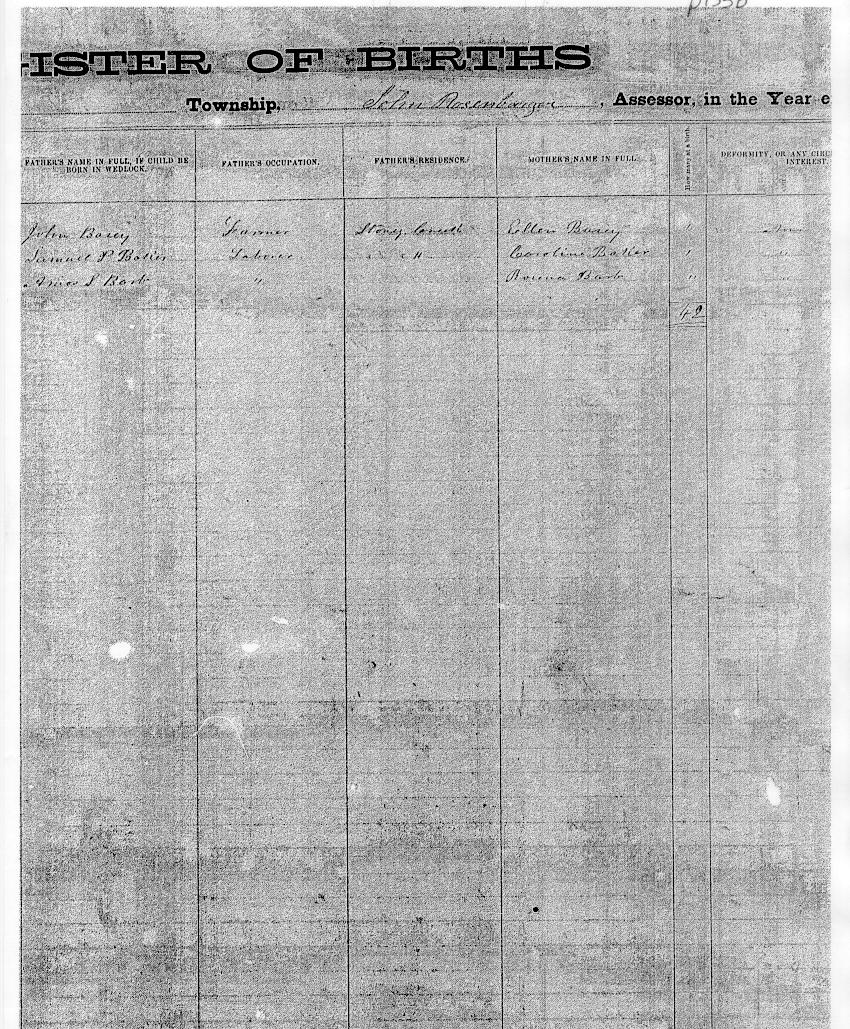 p1550
ISTER OF BIRTHS
Township, John Rosenberger, Assessor, in the Year
FATHER'S NAME IN FULL, IF CHILD BE BORN IN WEDLOCK. FATHER'S OCCUPATION. FATHER'S RESIDENCE. MOTHER'S NAME IN FULL. How many at a birth. DEFORMITY, OR ANY CIRC INTEREST.
John Bosey Farmer Stoney Creek Ellen Bosey 1
Samuel P Baker Laborer " Caroline Baker 1 "
Amos S Barb " Barb " "
42